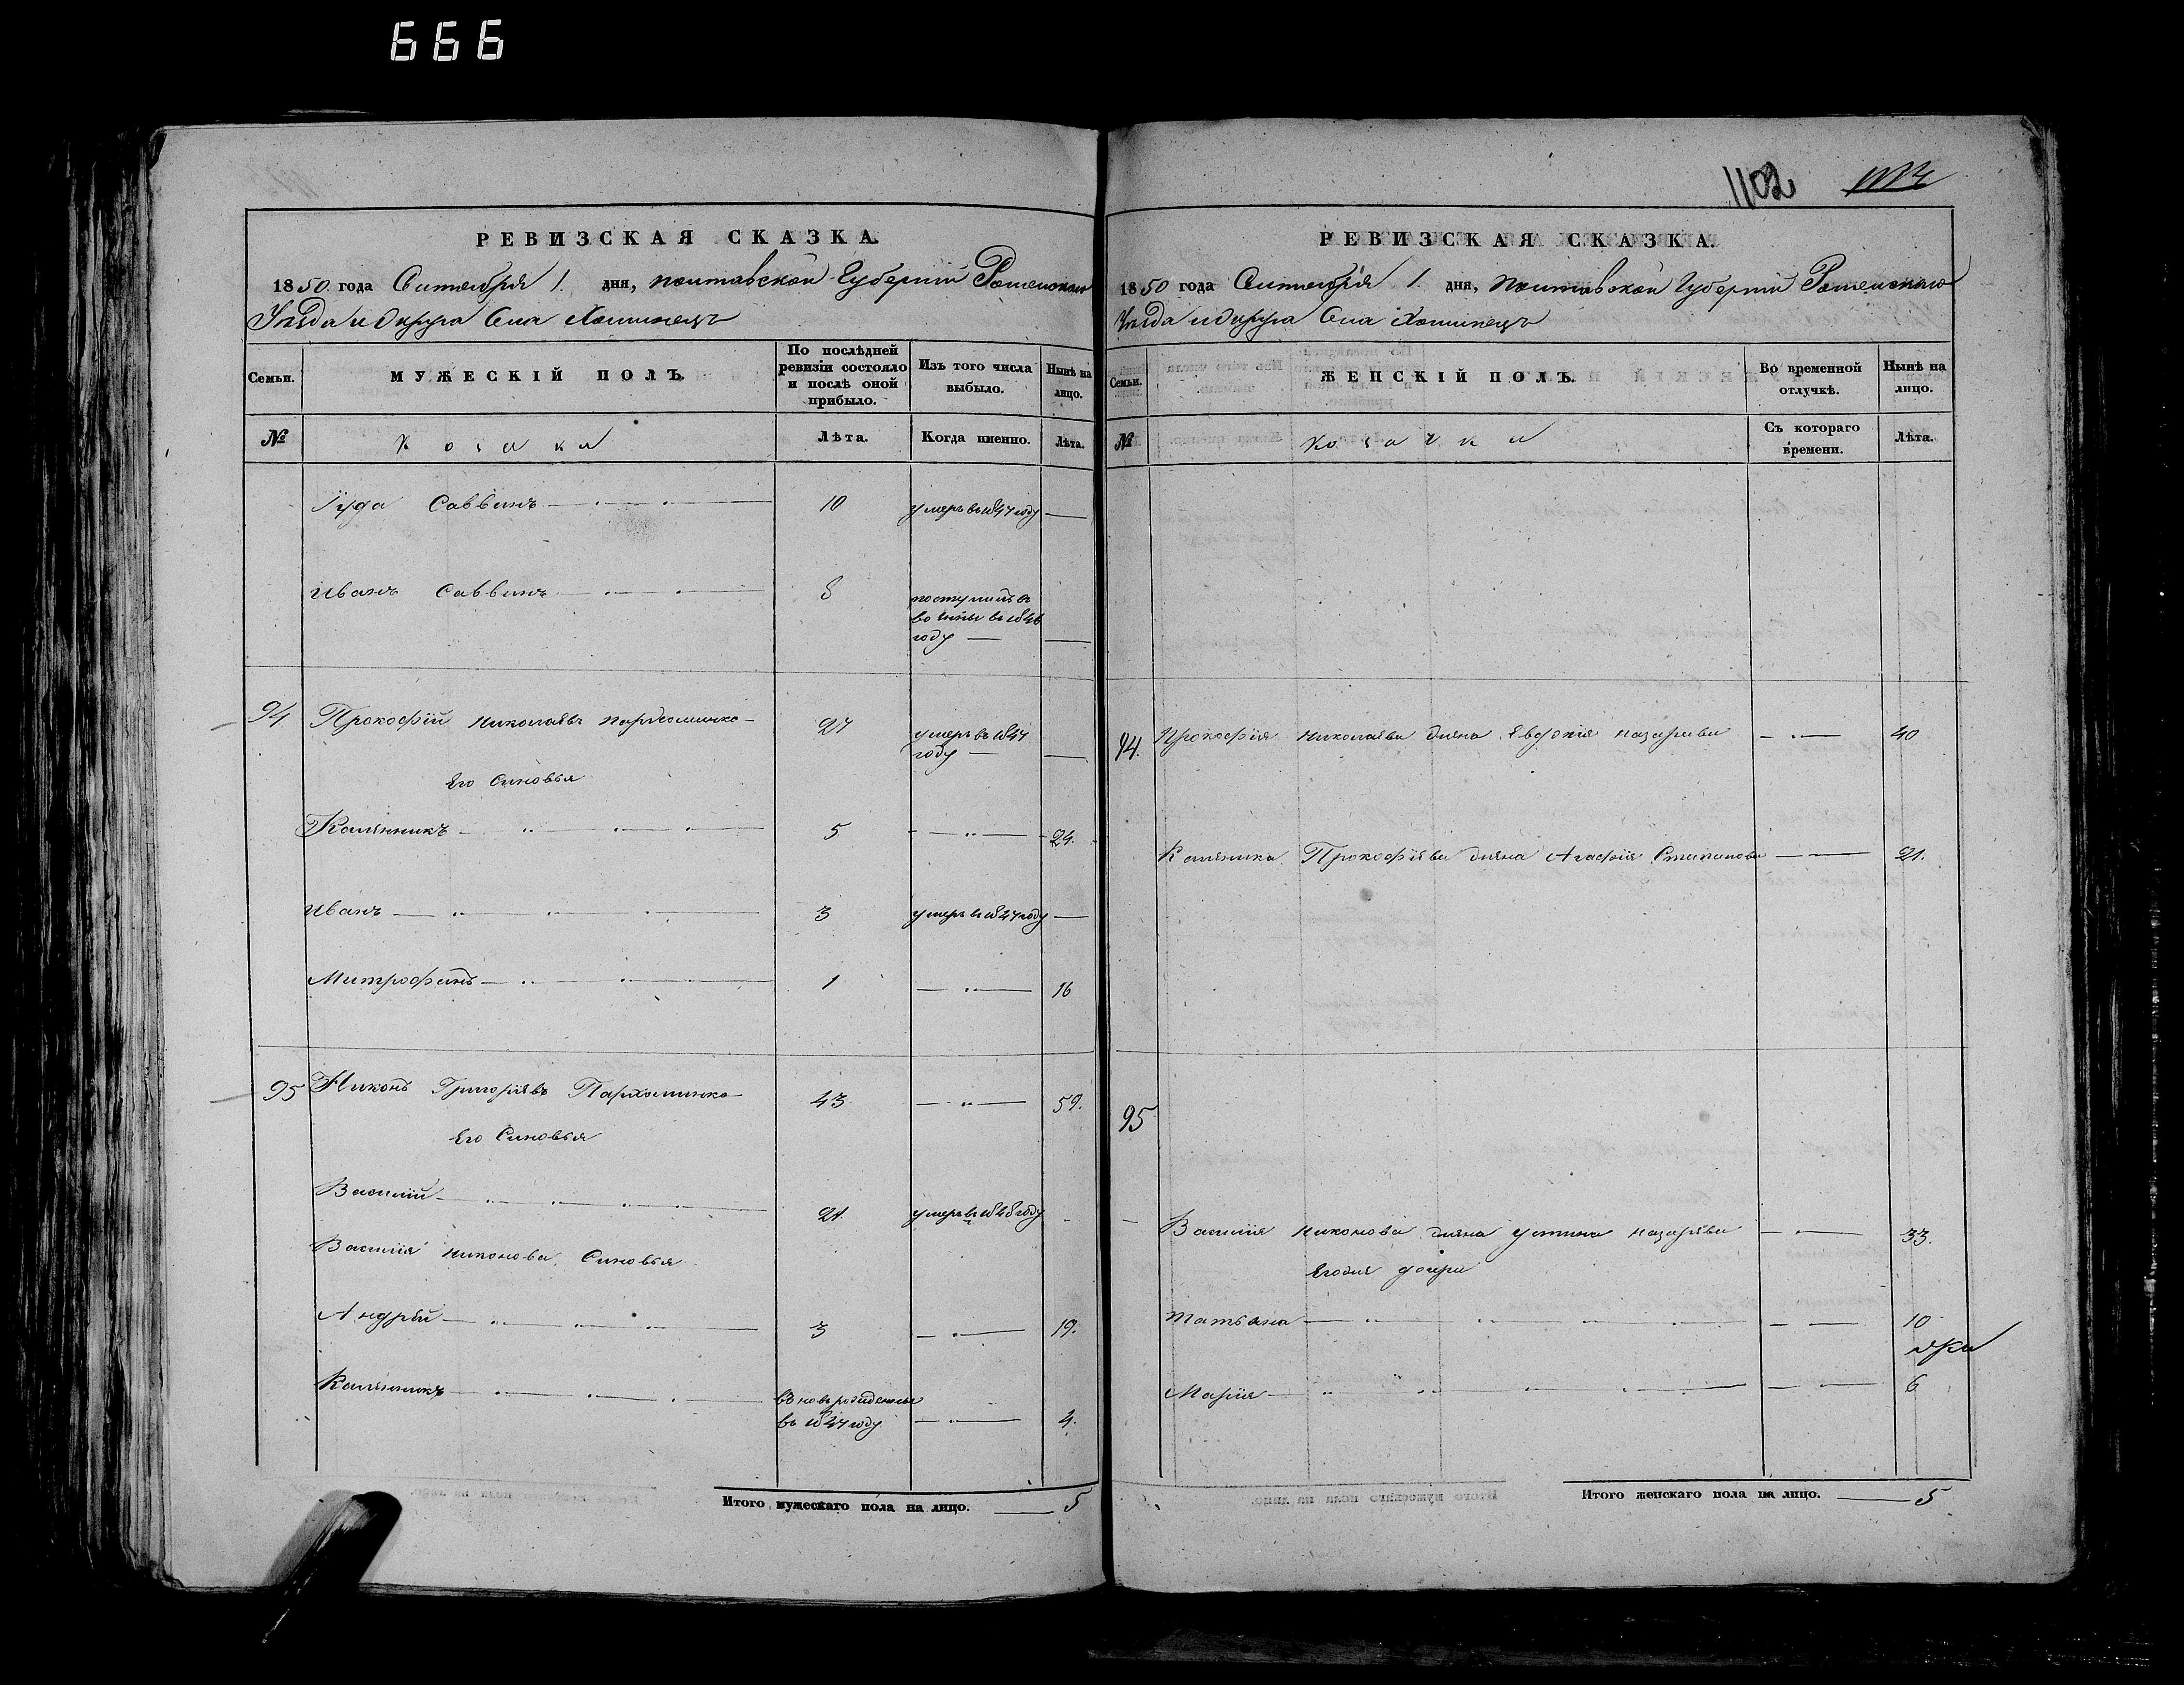 666
1102
РЕВИЗСКАЯ СКАЗКА.
1850 года Синтября 1. дня, Полтавской Губернии Роменского
Уезда и округа Села Хоминец
Семьи. МУЖЕСКІЙ ПОЛЪ. По послѣдней ревизіи состояло и послѣ оной прибыло. Изъ того числа выбыло. Нынѣ на лицо.
№ Козаки Лѣта. Когда именно. Лѣта.
Іуда Саввинъ 10 умеръ въ 1847 году
Иванъ Саввинъ 8 поступилъ в
году
94 Прокофій Николаевъ Пархоминко 27 умеръ въ 1847
году
Его Синовья
Калѣнникъ 5 24.
Иванъ 3 умеръ въ 1847 году
Митрофанъ 1 16
95 Никонъ Григоріевъ Пархоминко 43 59.
Его Синовья
Василій 21. умеръ въ 1848 году
Василія Никонова Синовья
Андрей 3 19.
Калѣнникъ въ новь рожденный
въ 1847 году 4.
Итого мужескаго пола на лицо. 5
РЕВИЗСКАЯ СКАЗКА.
1850 года Синтября 1. дня, Полтавской Губернии Роменского
Уезда и округа Села Хоминец
Семьи. ЖЕНСКІЙ ПОЛЪ. Во временной отлучкѣ. Нынѣ на лицо.
№ Козачки Съ котораго времени. Лѣта.
94. Прокофія Николаева жена Евдокія Назарьева 40
Калѣника Прокофіева жена Агафія Стипанова 21.
95
Василія Никонова жена Устина Назарьева 33.
дочери
Татьяна 10
Марія 6
Итого женскаго пола на лицо. 5